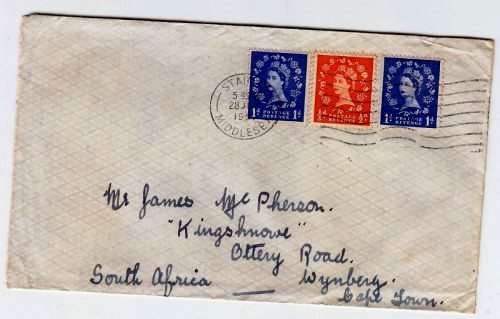 STAI
5
28 J
19
MIDDLESEX
1ᵈ POSTAGE REVENUE 1ᵈ
½ᵈ POSTAGE REVENUE ½ᵈ
1ᵈ POSTAGE REVENUE 1ᵈ
Mr James McPherson.
"Kingsknowe"
Ottery Road.
South Africa Wynberg.
Cape Town.